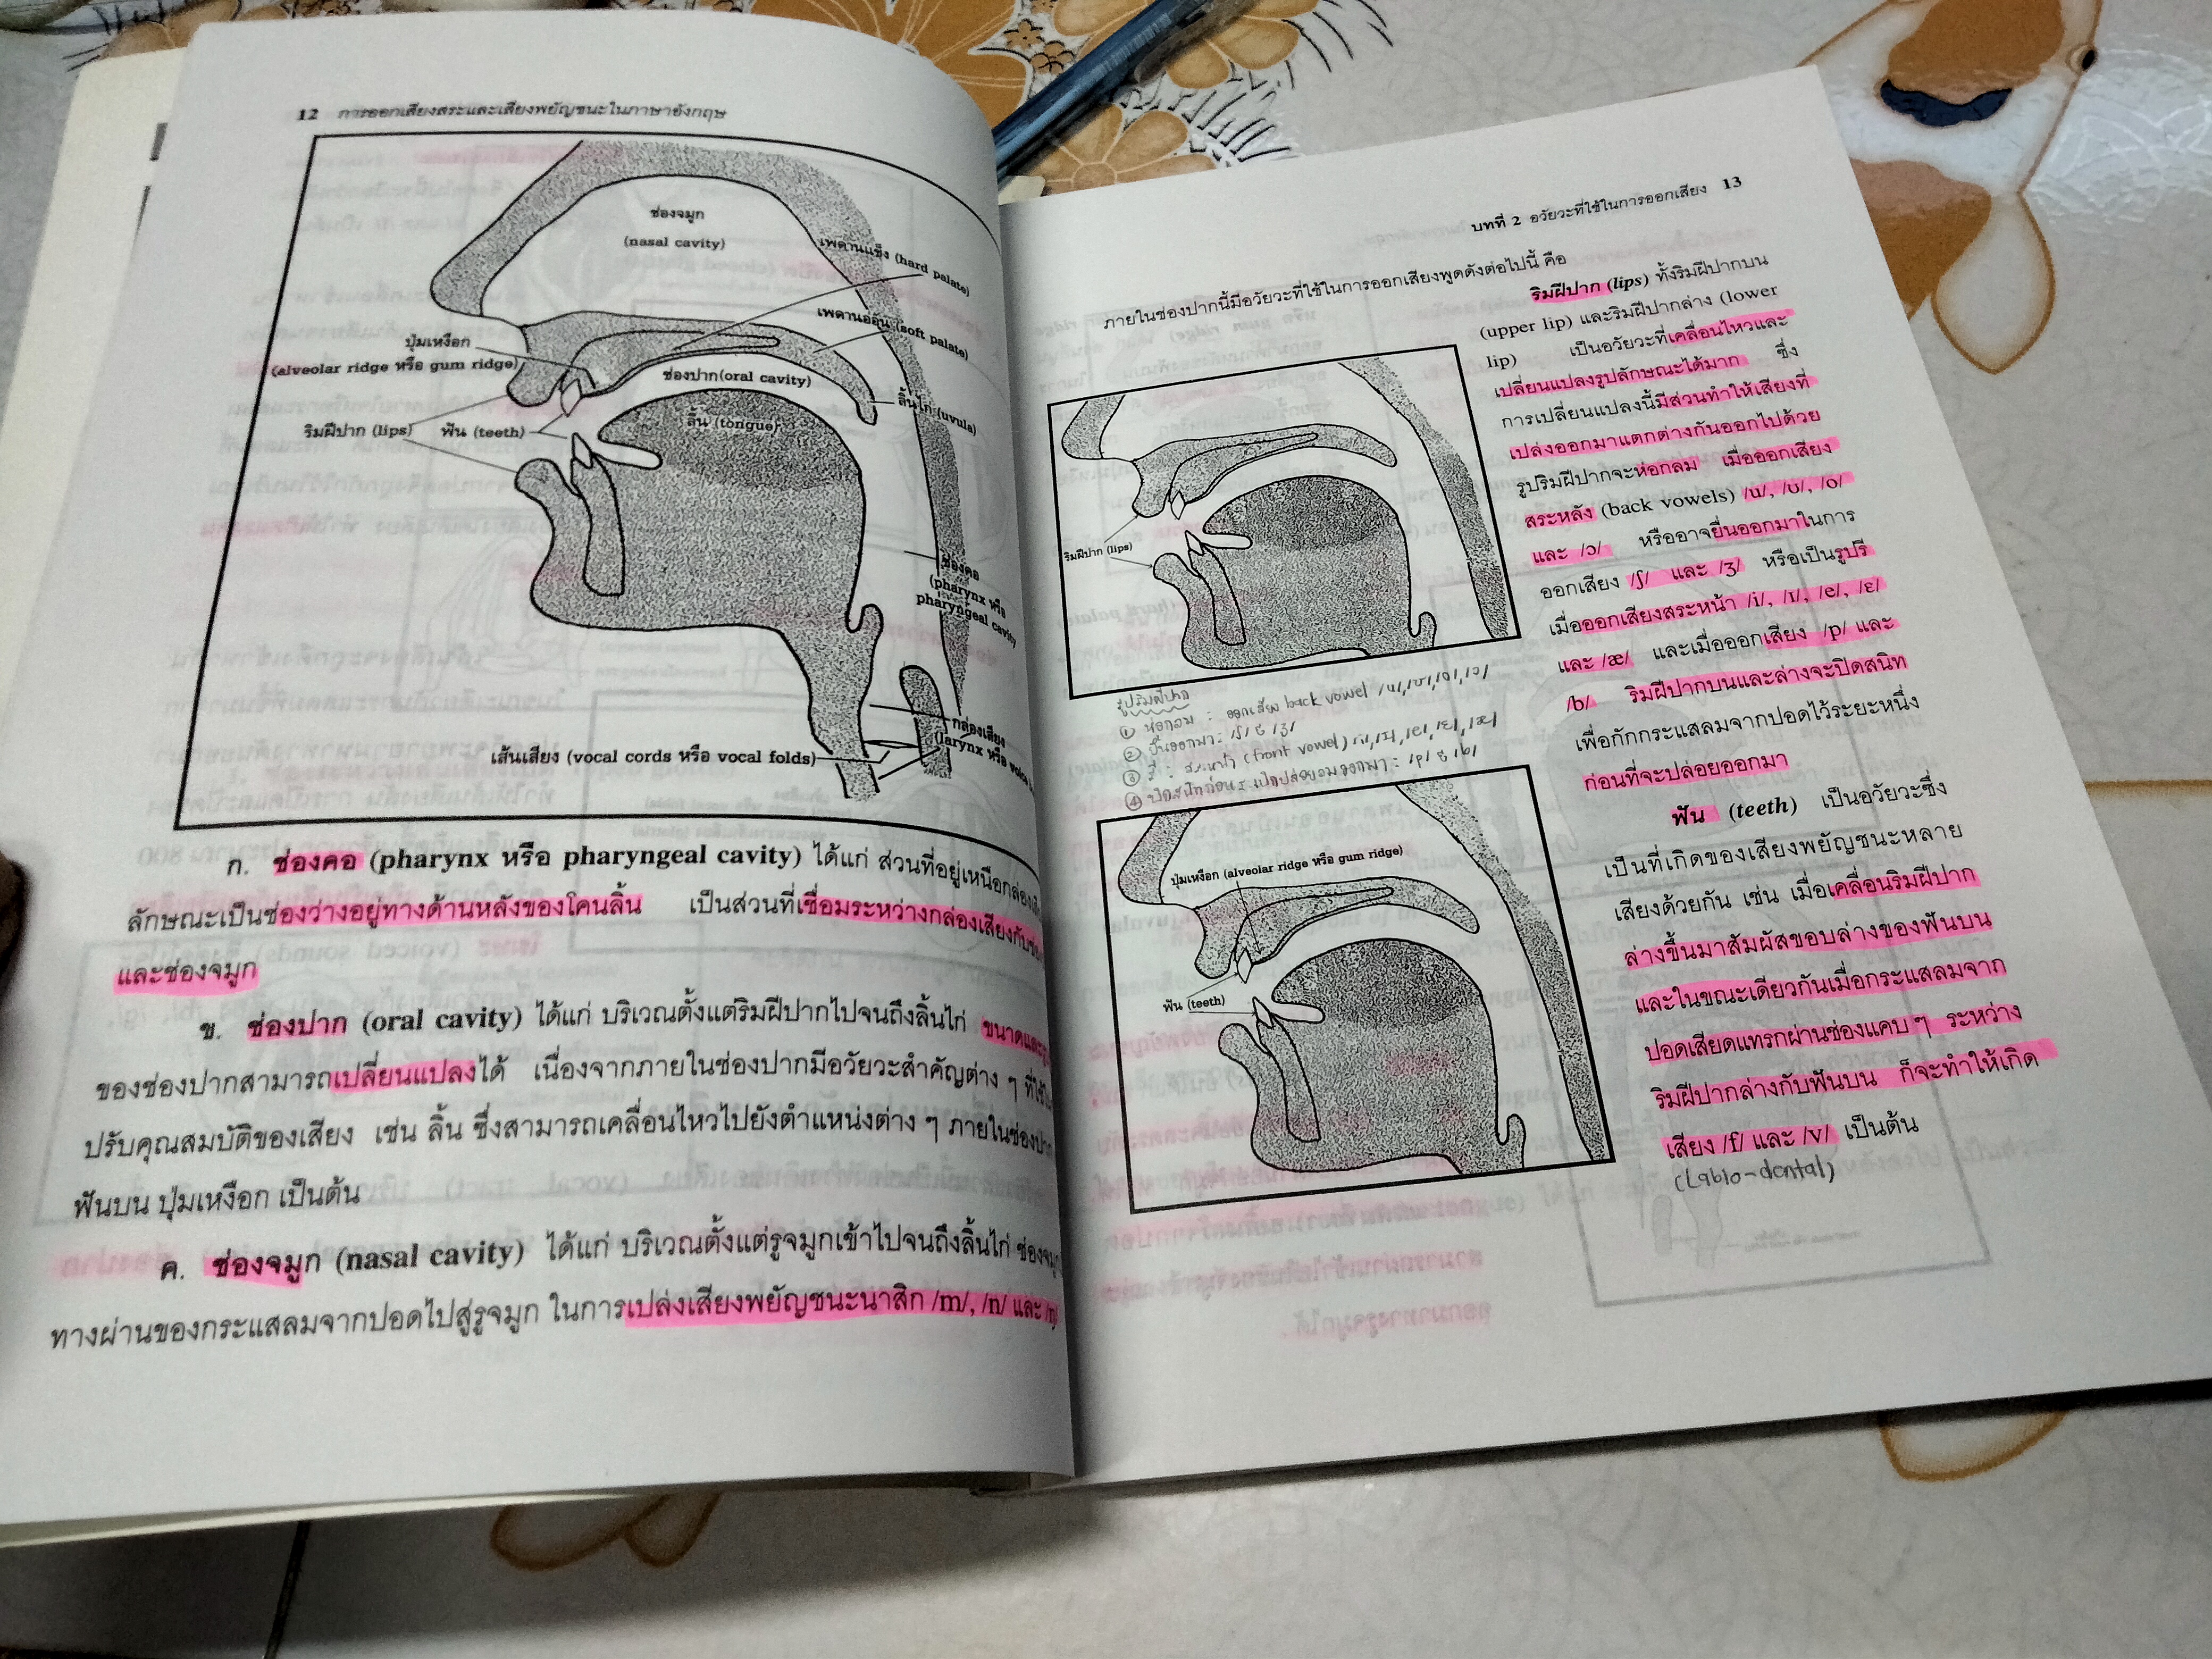 12 การออกเสียงสระและเสียงพยัญชนะในภาษาอังกฤษ
ช่องจมูก
(nasal cavity)
เพดานแข็ง (hard palate)
เพดานอ่อน (soft palate)
ปุ่มเหงือก
(alveolar ridge หรือ gum ridge)
ช่องปาก(oral cavity)
ลิ้นไก่ (uvula)
ริมฝีปาก (lips)
ฟัน (teeth)
ลิ้น (tongue)
ช่องคอ
(pharynx หรือ
pharyngeal cavity)
กล่องเสียง
(larynx หรือ voice
เส้นเสียง (vocal cords หรือ vocal folds)
ก. ช่องคอ (pharynx หรือ pharyngeal cavity) ได้แก่ ส่วนที่อยู่เหนือกล่องเสียง
ลักษณะเป็นช่องว่างอยู่ทางด้านหลังของโคนลิ้น เป็นส่วนที่เชื่อมระหว่างกล่องเสียงกับ
และช่องจมูก
ข. ช่องปาก (oral cavity) ได้แก่ บริเวณตั้งแต่ริมฝีปากไปจนถึงลิ้นไก่ ขนาดและ
ของช่องปากสามารถเปลี่ยนแปลงได้ เนื่องจากภายในช่องปากมีอวัยวะสำคัญต่าง ๆ ที่ใช้
ปรับคุณสมบัติของเสียง เช่น ลิ้น ซึ่งสามารถเคลื่อนไหวไปยังตำแหน่งต่าง ๆ ภายในช่องปาก
ฟันบน ปุ่มเหงือก เป็นต้น
ค. ช่องจมูก (nasal cavity) ได้แก่ บริเวณตั้งแต่รูจมูกเข้าไปจนถึงลิ้นไก่ ช่องจมูก
ทางผ่านของกระแสลมจากปอดไปสู่รูจมูก ในการเปล่งเสียงพยัญชนะนาสิก /m/, /n/ และ /ŋ/
บทที่ 2 อวัยวะที่ใช้ในการออกเสียง 13
ภายในช่องปากนี้มีอวัยวะที่ใช้ในการออกเสียงพูดดังต่อไปนี้ คือ
ริมฝีปาก (lips) ทั้งริมฝีปากบน
(upper lip) และริมฝีปากล่าง (lower
lip) เป็นอวัยวะที่เคลื่อนไหวและ
เปลี่ยนแปลงรูปลักษณะได้มาก ซึ่ง
การเปลี่ยนแปลงนี้มีส่วนทำให้เสียงที่
เปล่งออกมาแตกต่างกันออกไปด้วย
รูปริมฝีปากจะห่อกลม เมื่อออกเสียง
สระหลัง (back vowels) /u/, /ʊ/, /o/
และ /ɔ/ หรืออาจยื่นออกมาในการ
ออกเสียง /ʃ/ และ /ʒ/ หรือเป็นรูปรี
เมื่อออกเสียงสระหน้า /i/, /ɪ/, /e/, /ɛ/
และ /æ/ และเมื่อออกเสียง /p/ และ
/b/ ริมฝีปากบนและล่างจะปิดสนิท
เพื่อกักกระแสลมจากปอดไว้ระยะหนึ่ง
ก่อนที่จะปล่อยออกมา
ริมฝีปาก (lips)
รูปริมฝีปาก
① ห่อกลม : ออกเสียง back vowel /u/,/ʊ/,/o/,/ɔ/
② ยื่นออกมา : /ʃ/ & /ʒ/
③ รี : สระหน้า (front vowel) /i/,/ɪ/,/e/,/ɛ/,/æ/
④ ปิดสนิทก่อน : /p/ & /b/
ฟัน (teeth) เป็นอวัยวะซึ่ง
เป็นที่เกิดของเสียงพยัญชนะหลาย
เสียงด้วยกัน เช่น เมื่อเคลื่อนริมฝีปาก
ล่างขึ้นมาสัมผัสขอบล่างของฟันบน
และในขณะเดียวกันเมื่อกระแสลมจาก
ปอดเสียดแทรกผ่านช่องแคบ ๆ ระหว่าง
ริมฝีปากล่างกับฟันบน ก็จะทำให้เกิด
เสียง /f/ และ /v/ เป็นต้น
(Labio-dental)
ปุ่มเหงือก (alveolar ridge หรือ gum ridge)
ฟัน (teeth)